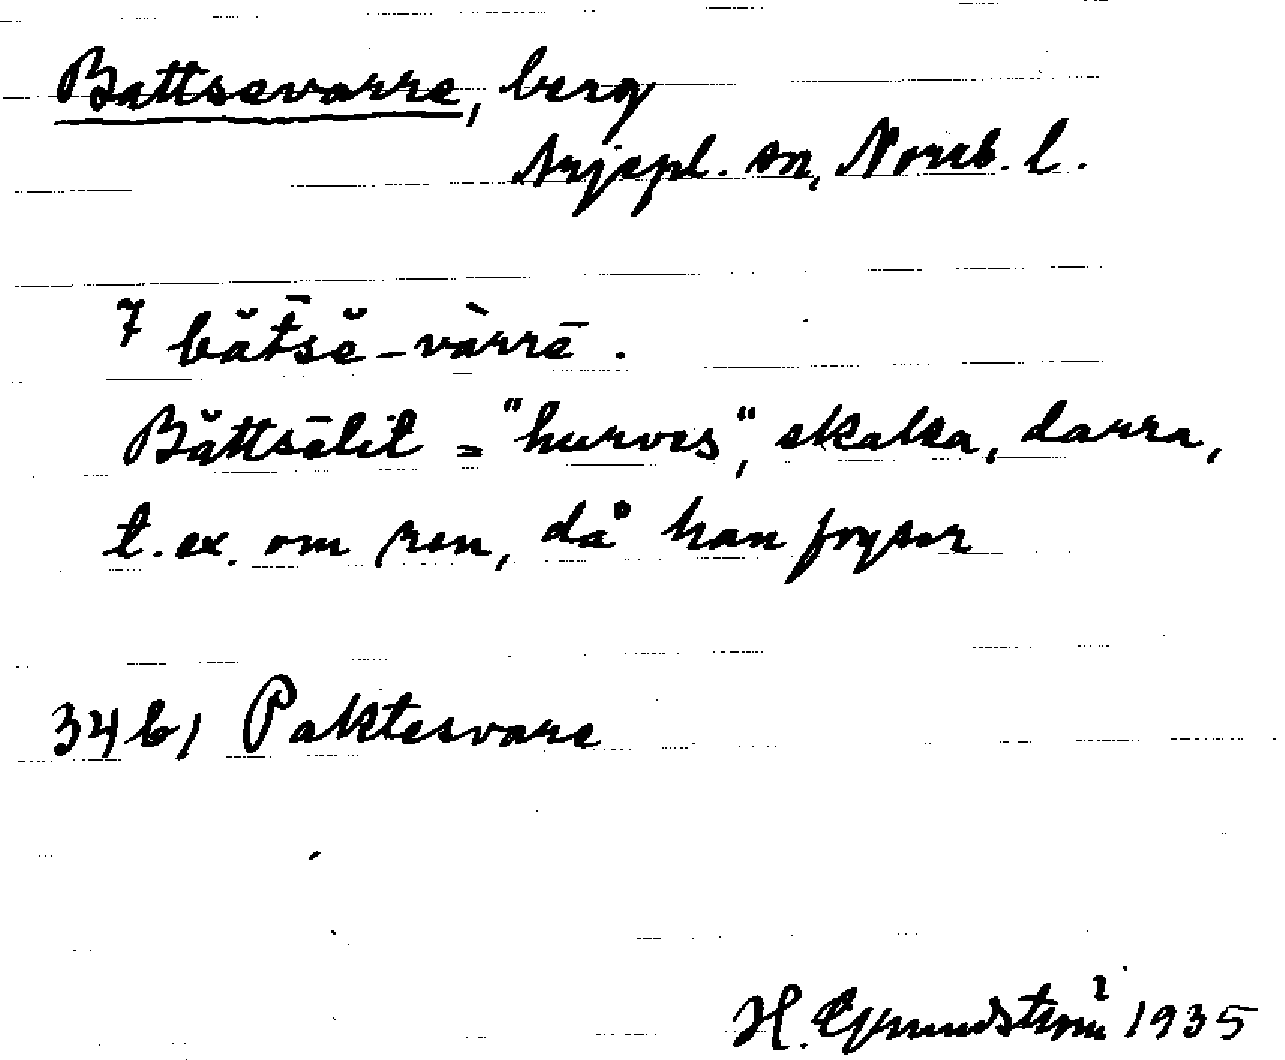 Battsevarre, berg
Arjepl. sn, Norrb. l.
7 băt̄sĕ-vàrrē.
Băttsēlit = "hurves", skaka, darra,
t.ex. om ren, då han fryser
34b1 Paktesvare
H. Grundström 1935